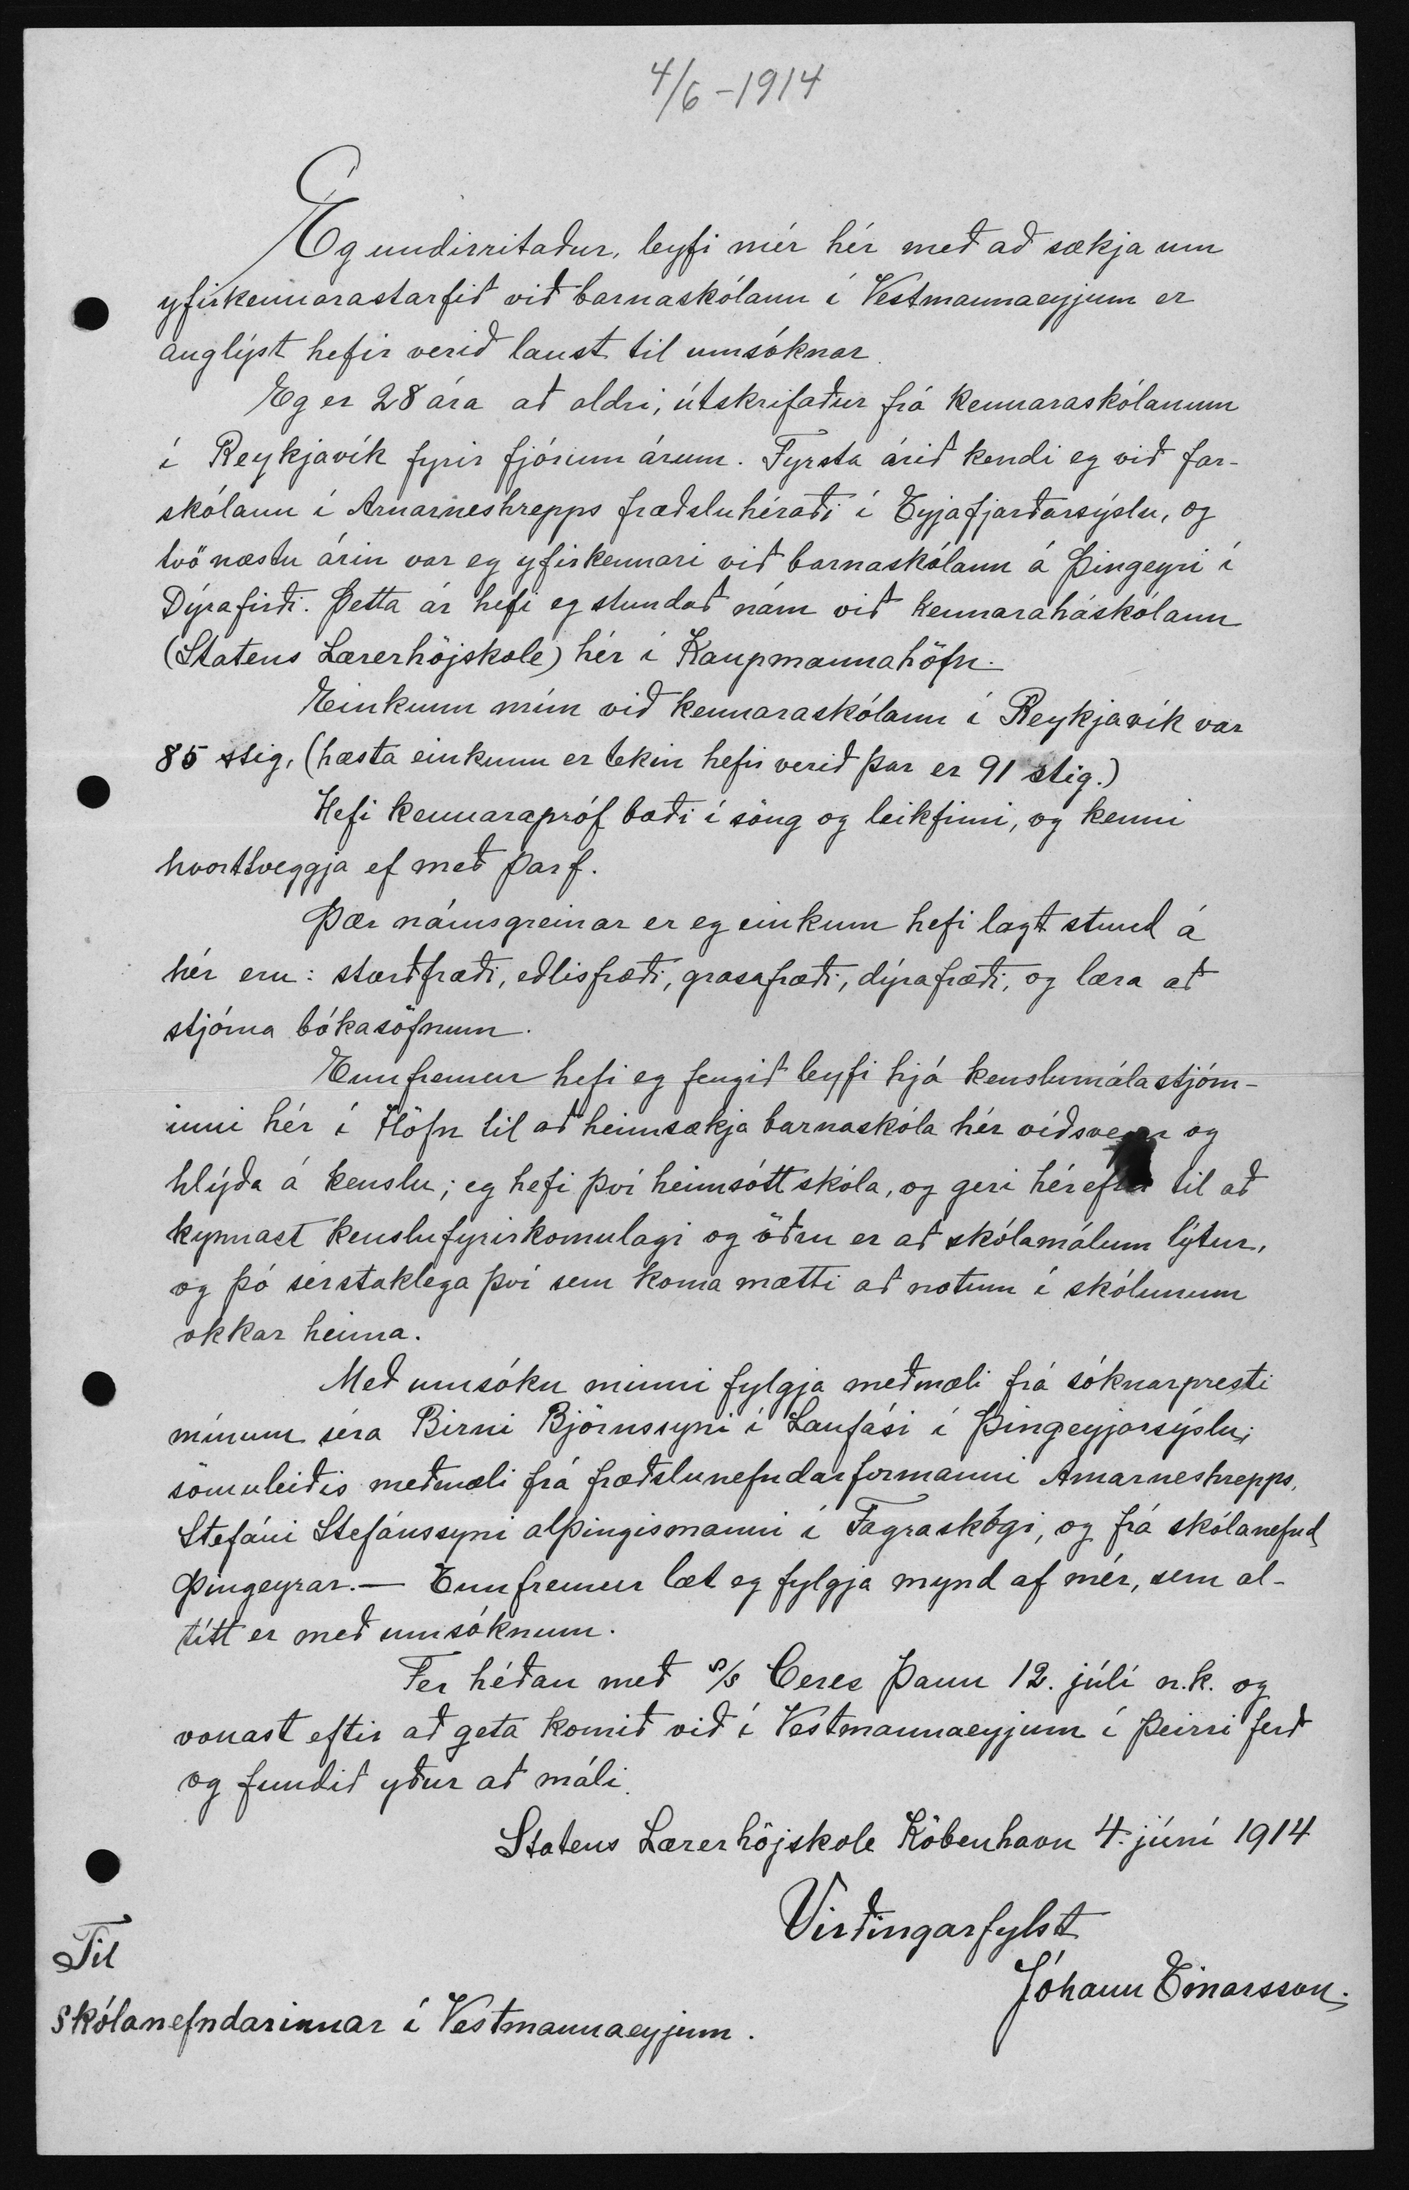 4/6-1914
Eg undirritaður, leyfi mér hér með að sækja um
yfirkennarastarfið við barnaskólann í Vestmannaeyjum er
auglýst hefir verið laust til umsóknar.
Eg er 28 ára að aldri, útskrifaður frá kennaraskólanum
í Reykjavík fyrir fjórum árum. Fyrsta árið kendi eg við far-
skólann í Arnarneshrepps fræðsluhéraði í Eyjafjarðarsýslu, og
tvö næstu árin var eg yfirkennari við barnaskólann á Þingeyri í
Dýrafirði. Þetta ár hefi eg stundað nám við kennaraháskólann
(Statens Lærerhöjskole) hér í Kaupmannahöfn.
Einkunn mín við kennaraskólann í Reykjavík var
85 stig, (hæsta einkunn er tekin hefir verið þar er 91 stig.)
Hefi kennarapróf bæði í söng og leikfimi, og kenni
hvorttveggja ef með þarf.
Þær námsgreinar er eg einkum hefi lagt stund á
hér eru: stærðfræði, eðlisfræði, grasafræði, dýrafræði, og læra að
stjórna bókasöfnum.
Ennfremur hefi eg fengið leyfi hjá kenslumálastjórn-
inni hér í Höfn til að heimsækja barnaskóla hér víðsvegar og
hlýða á kenslu; eg hefi því heimsótt skóla, og geri héreftir til að
kynnast kenslufyrirkomulagi og öðru er að skólamálum lýtur,
og þó sérstaklega því sem koma mætti að notum í skólunum
okkar heima.
Með umsókn minni fylgja meðmæli frá sóknarpresti
mínum séra Birni Björnssyni í Laufási í Þingeyjarsýslu;
sömuleiðis meðmæli frá fræðslunefndarformanni Arnarneshrepps,
Stefáni Stefánssyni alþingismanni í Fagraskógi, og frá skólanefnd
Þingeyrar. — Ennfremur læt eg fylgja mynd af mér, sem al-
títt er með umsóknum.
Fer héðan með s/s Ceres þann 12. júlí n.k. og
vonast eftir að geta komið við í Vestmannaeyjum í þeirri ferð
og fundið yður að máli.
Statens Lærerhöjskole Köbenhavn 4. júní 1914
Virðingarfylst
Jóhann Einarsson.
Til
skólanefndarinnar í Vestmannaeyjum.